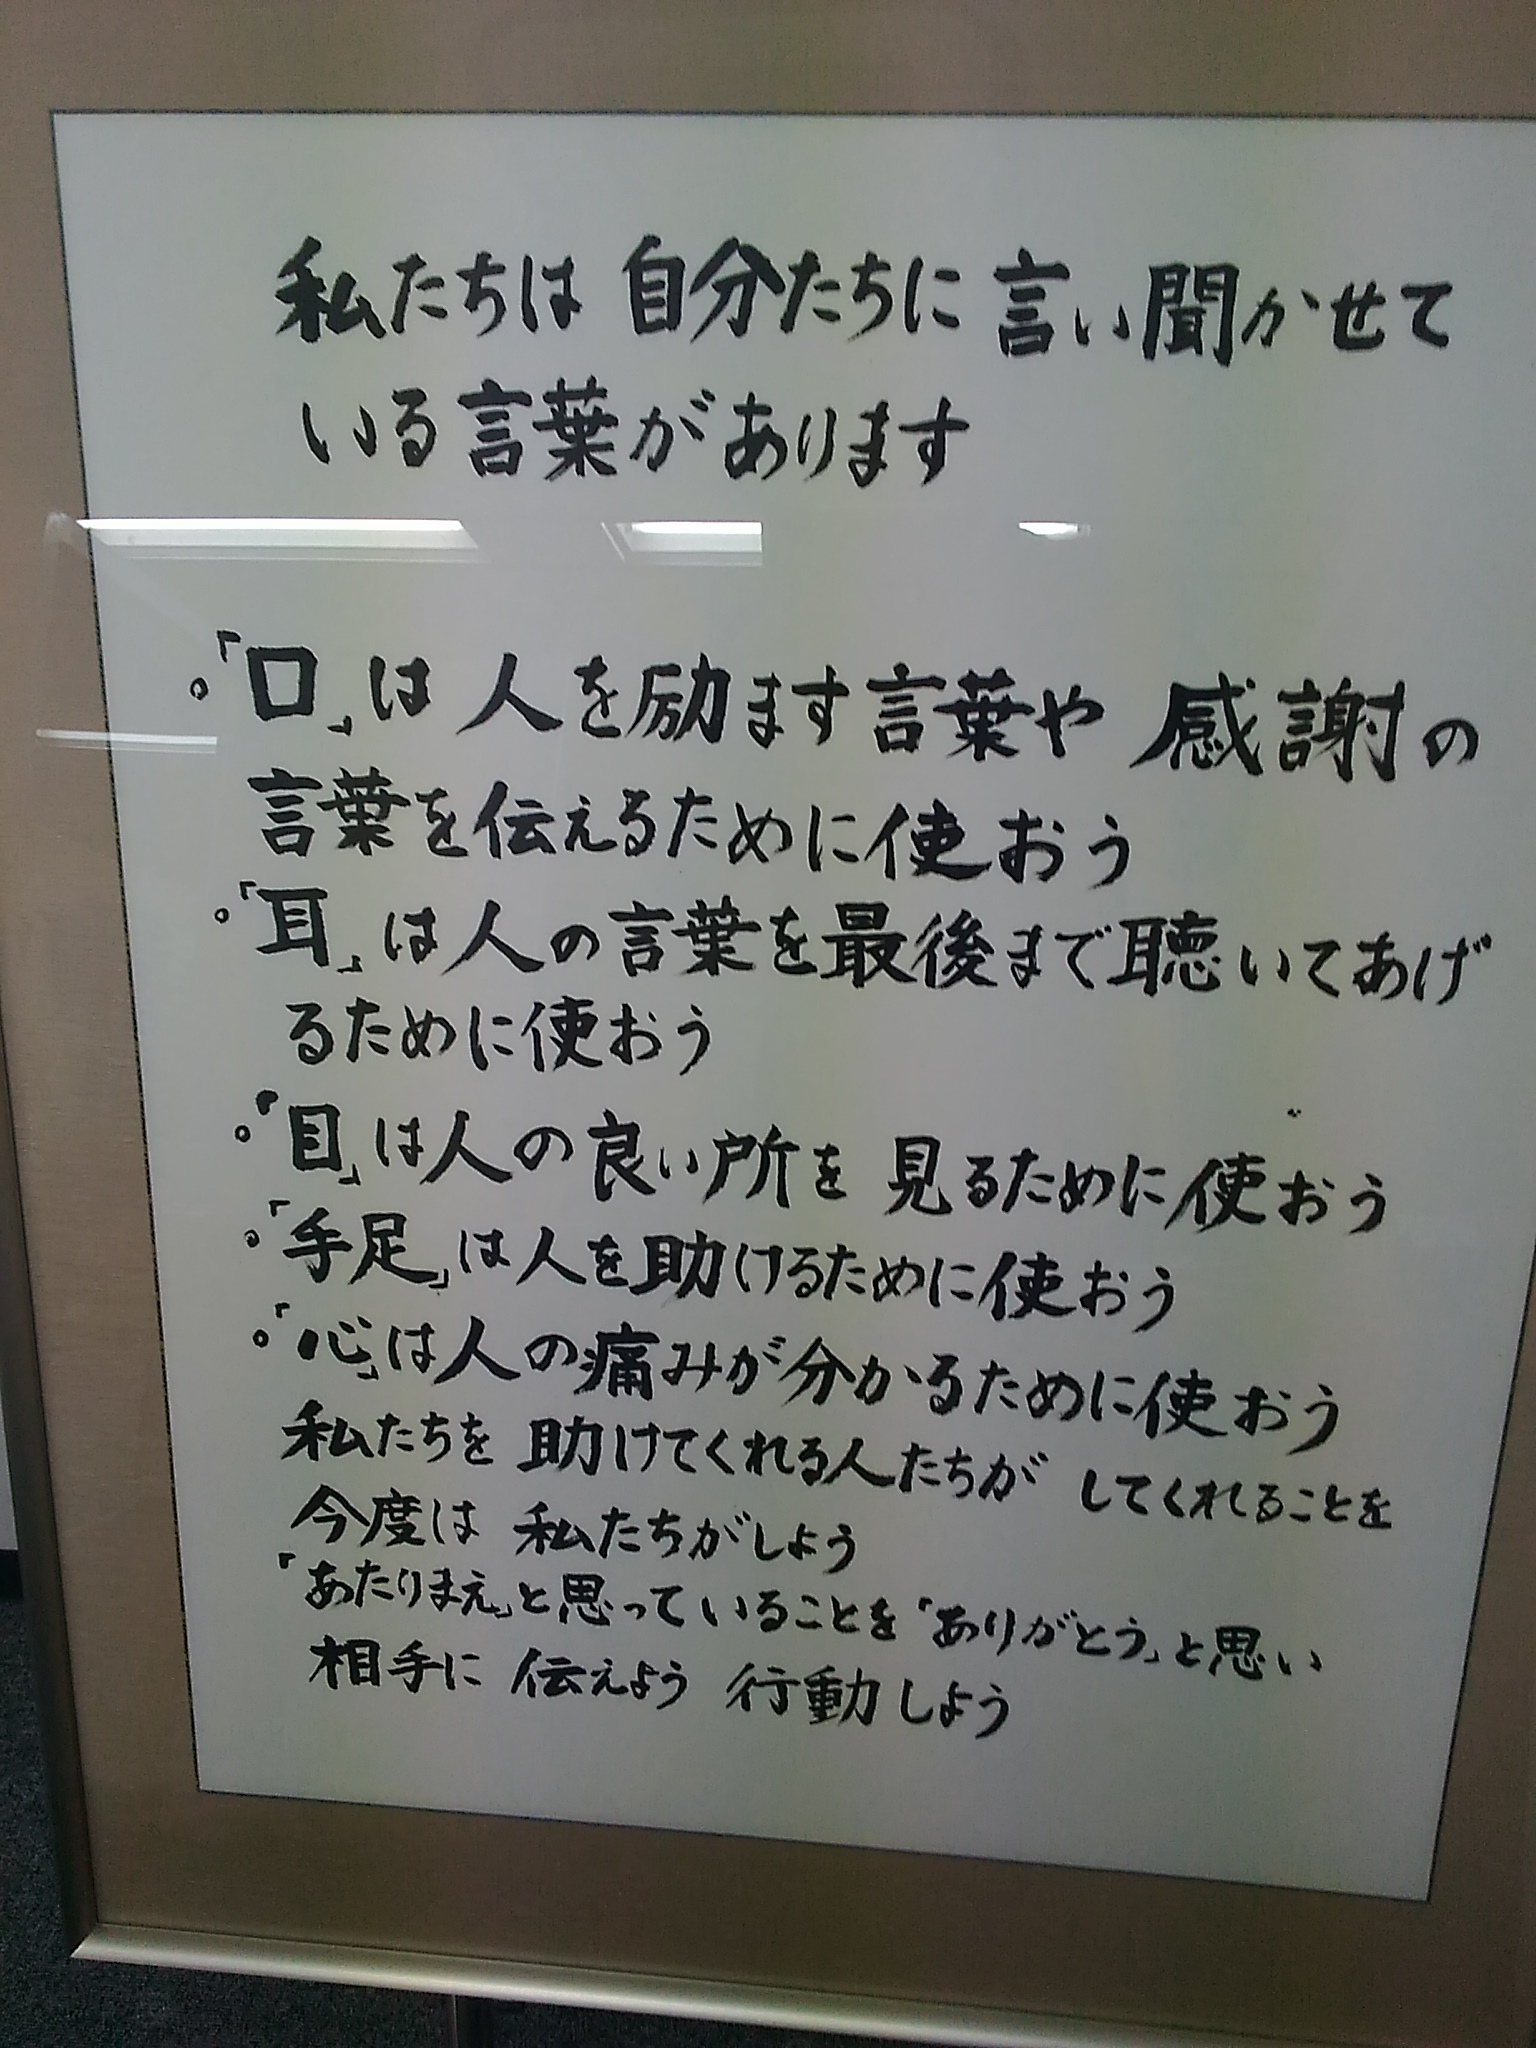 私たちは 自分たちに 言い聞かせて
いる言葉があります
。「口」は 人を励ます言葉や 感謝の
言葉を伝えるために使おう
。「耳」は人の言葉を最後まで聴いてあげ
るために使おう
。「目」は人の良い所を 見るために使おう
。「手足」は人を助けるために使おう
。「心」は人の痛みが分かるために使おう
私たちを 助けてくれる人たちが してくれることを
今度は 私たちがしよう
「あたりまえ」と思っていることを「ありがとう」と思い
相手に 伝えよう 行動しよう